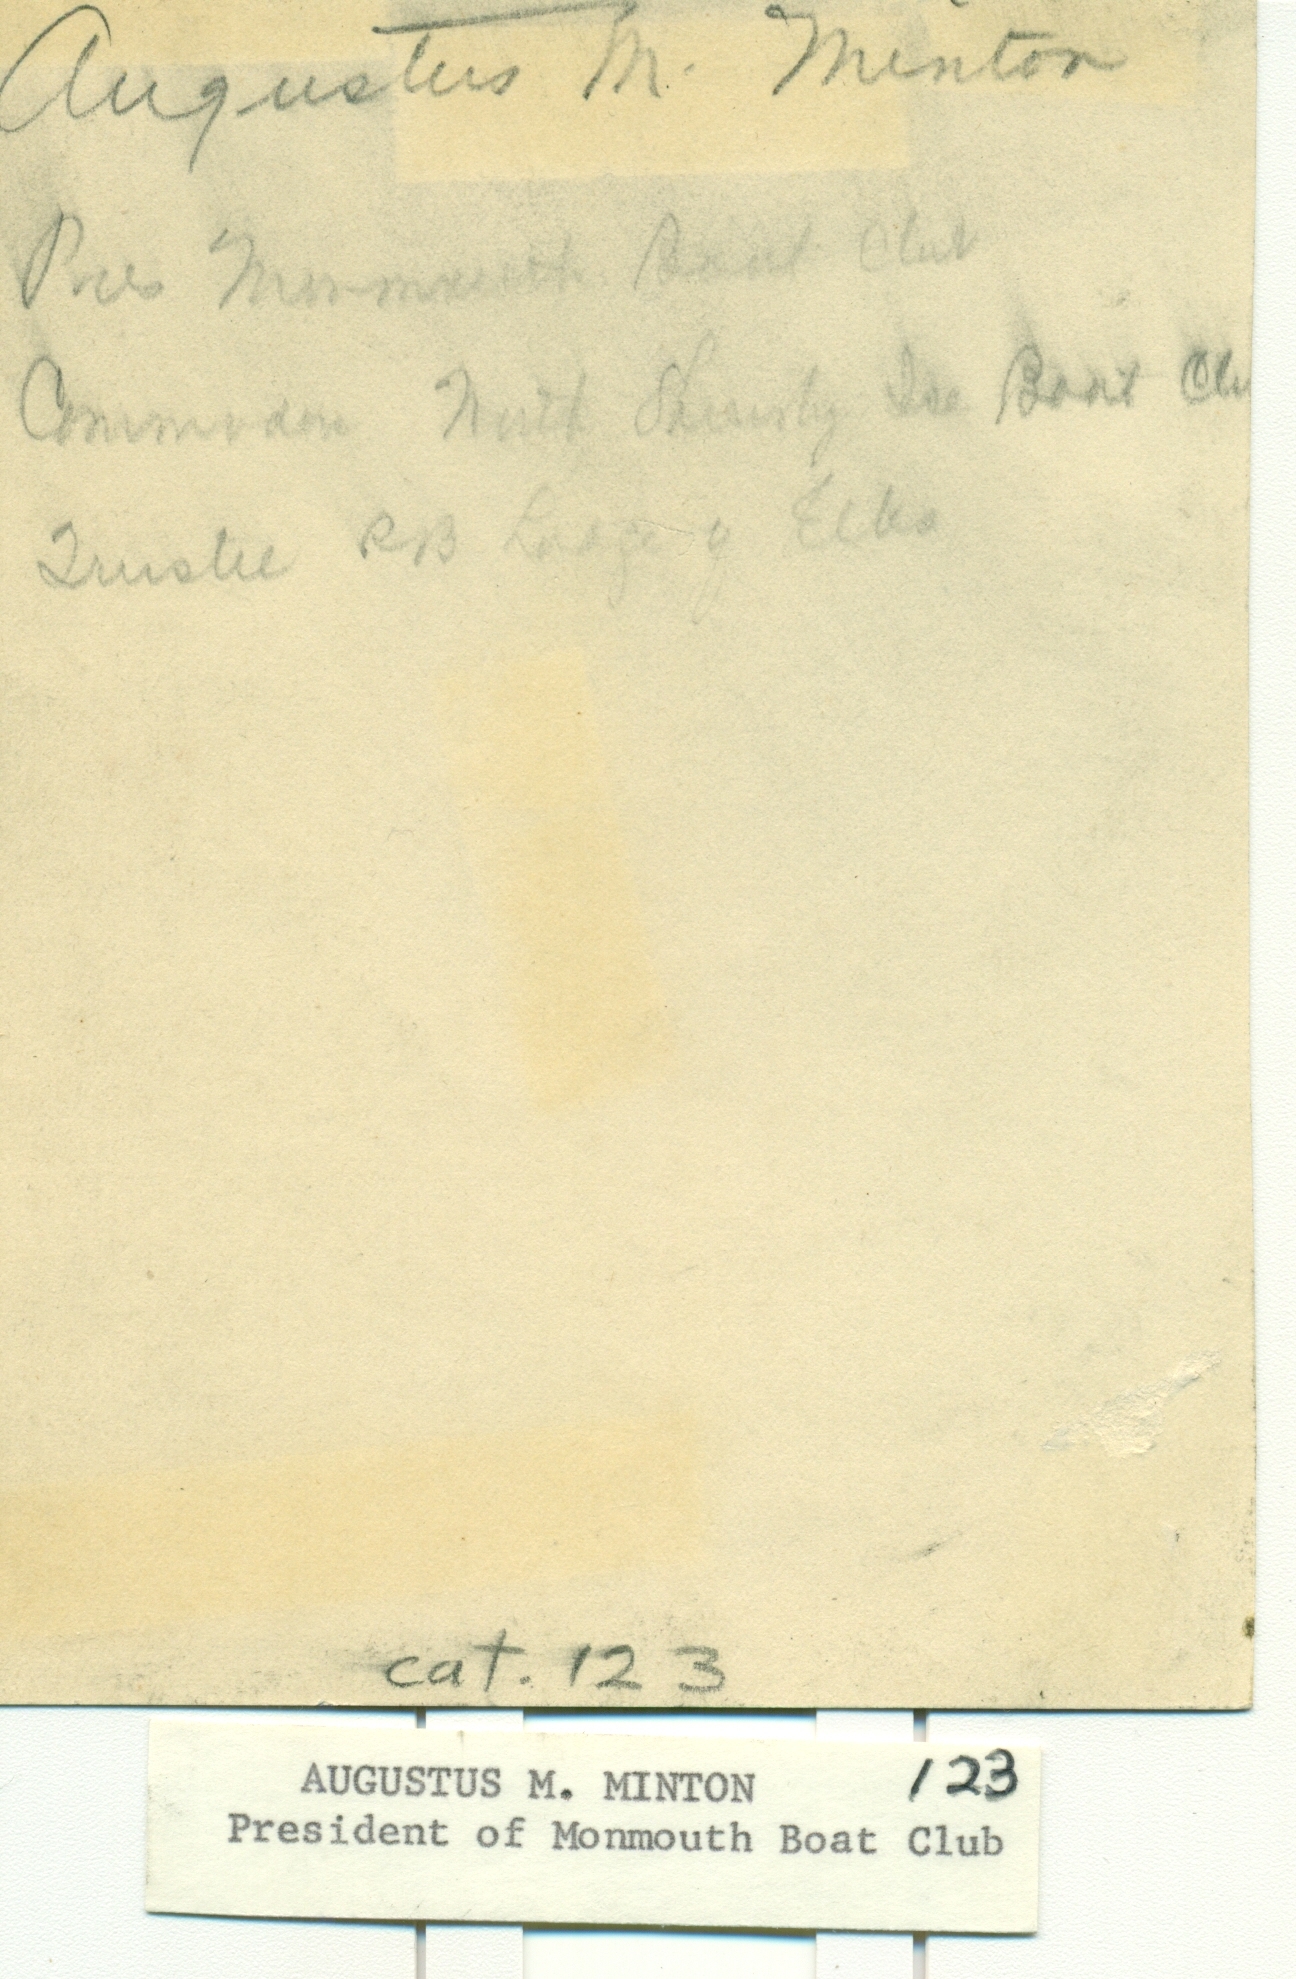 Augustus M. Minton
Pres Monmouth Boat Club
Commodore North Shrewsby Ice Boat Clu
Trustee RB Lodge of Elks
cat. 123
AUGUSTUS M. MINTON 123
President of Monmouth Boat Club